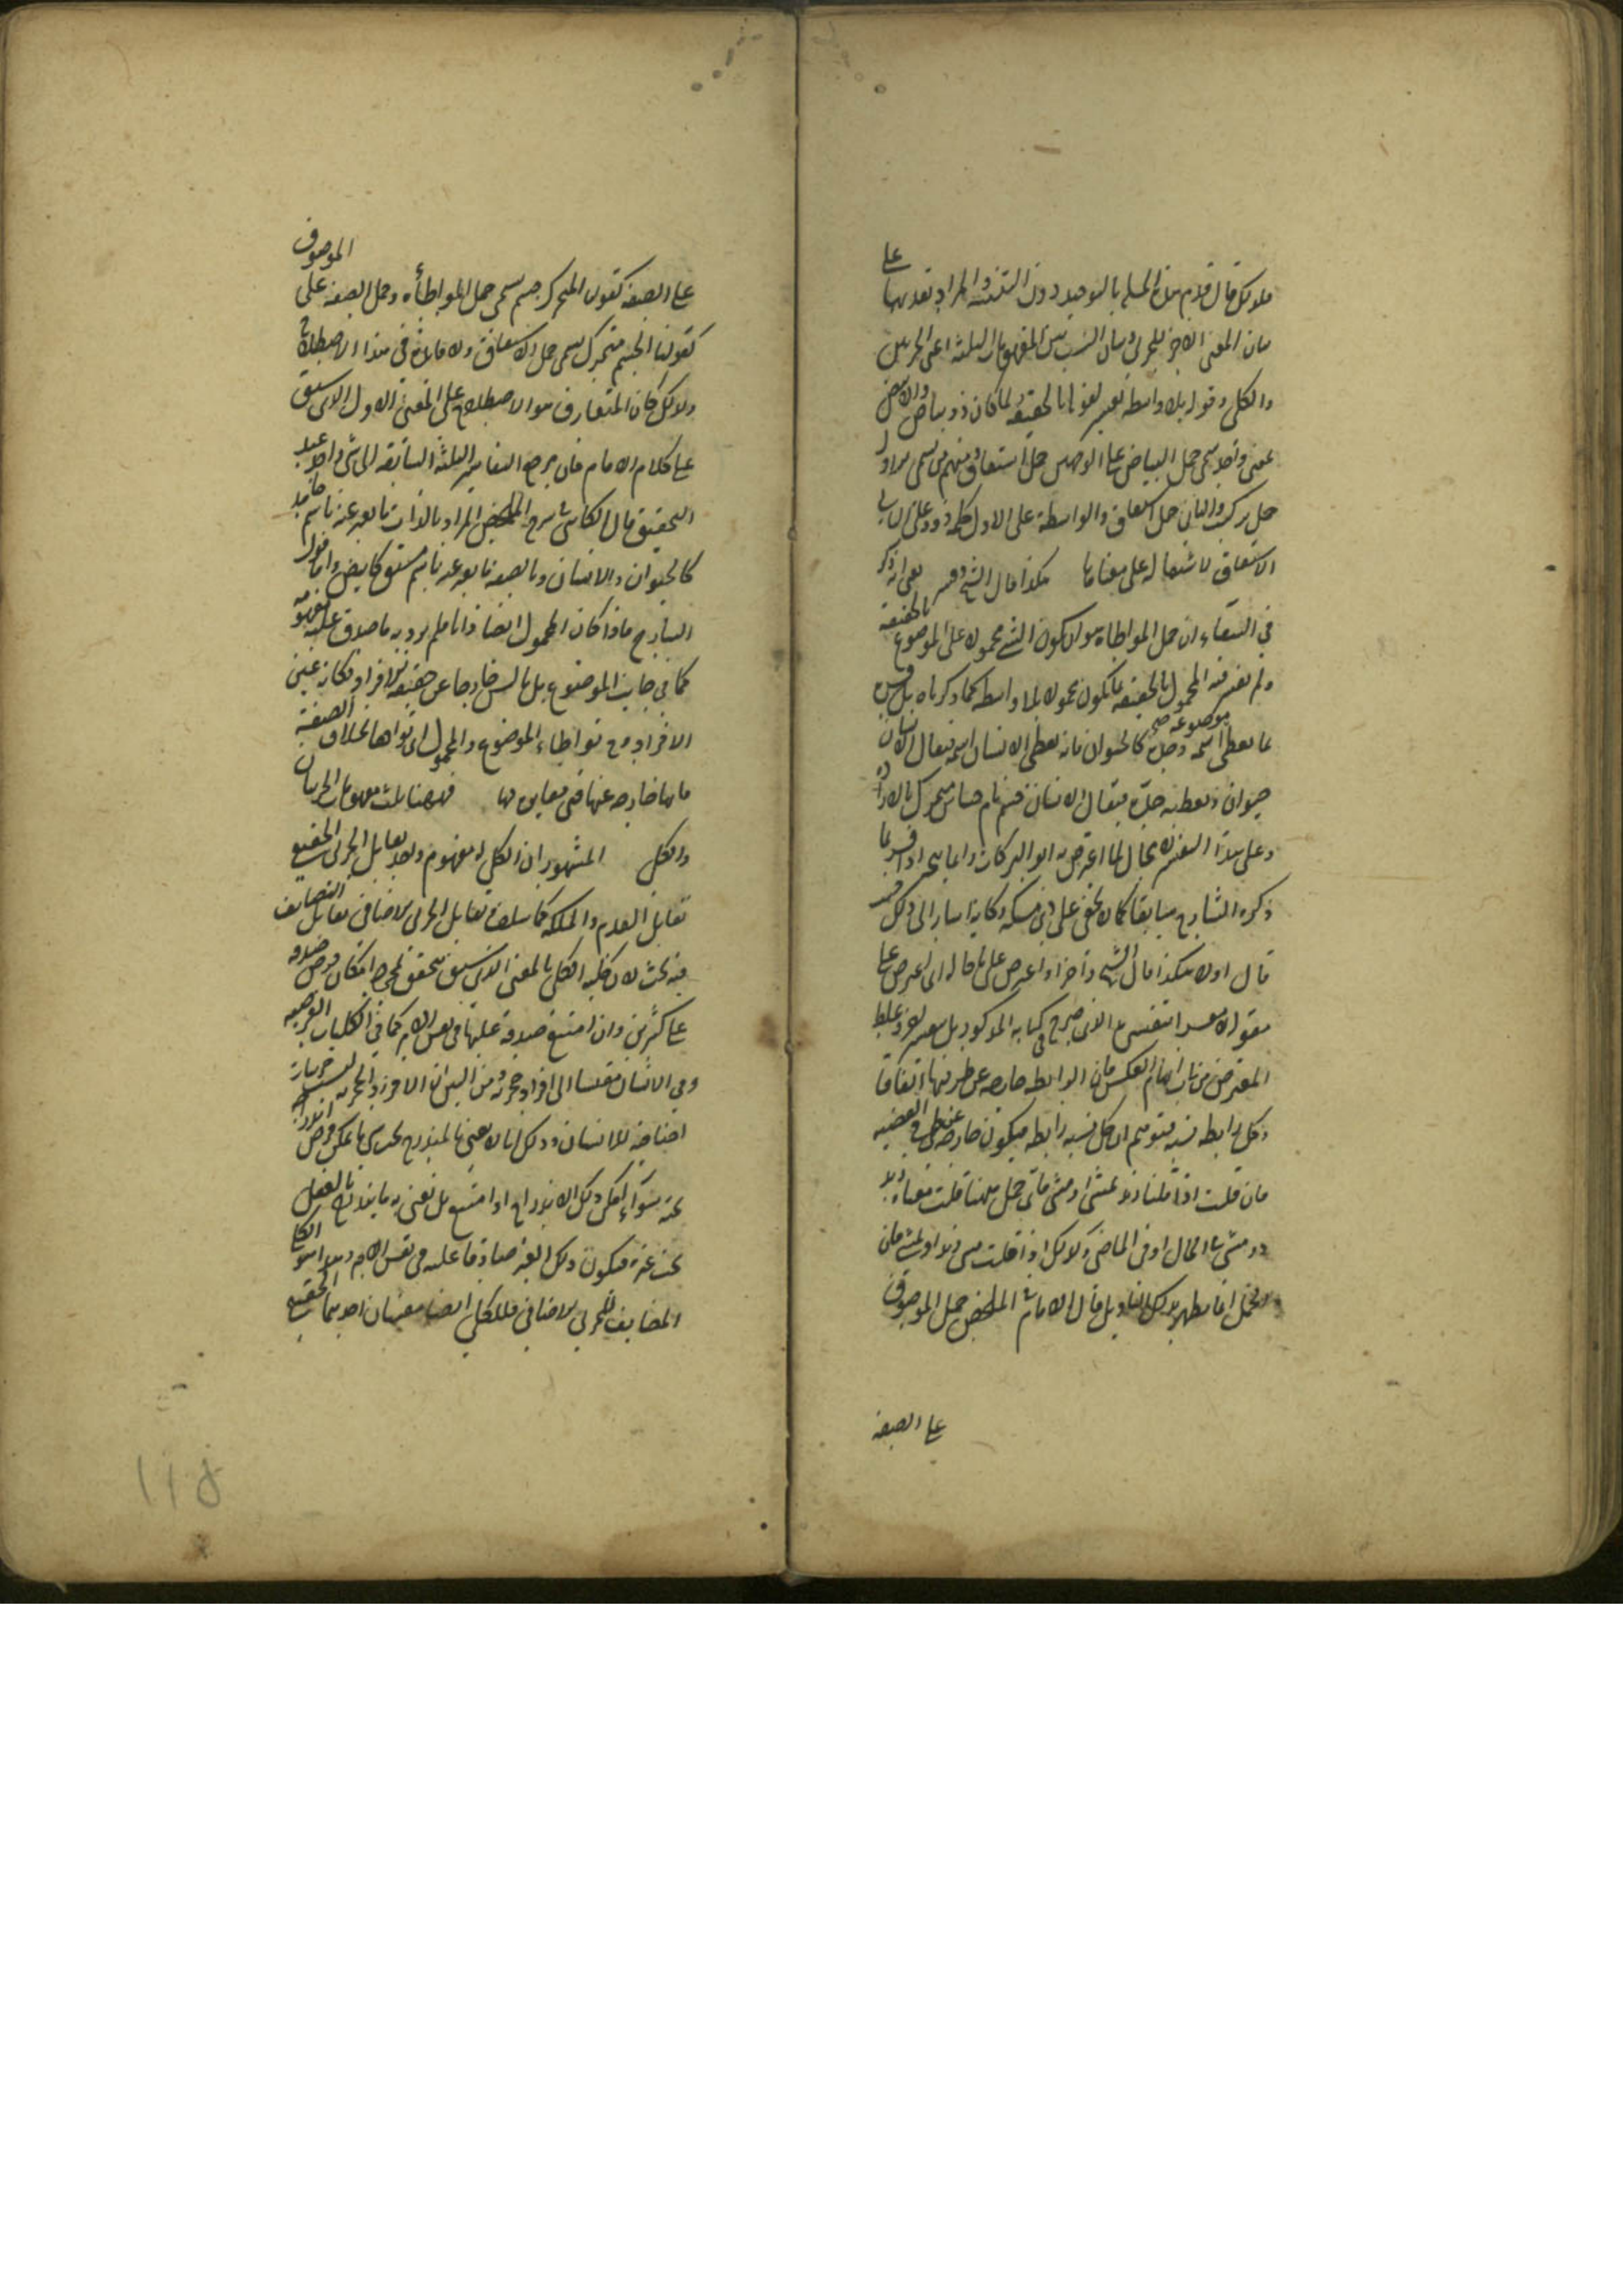 فلذلك قال قدم هذه المسئلة بالتوحيد دون التثنية والمراد تقديمها على
بيان المعنى الاخر للجزئي وبيان النسب بين المفهومات الثلثة اعني الجزئيين
والكلي وقوله بلا واسطة تفسير لقولنا بالحقيقة لما كان ذو بياض والابيض
بمعنى واحد سمي حمل البياض على الوجهين حمل اشتقاق ومنهم من يسمي الاول
حمل تركيب والثاني حمل اشتقاق والواسطة على الاول كلمة ذو وعلى الثاني
الاشتقاق لاشتماله على معناها هكذا قال الشيخ يعني انه ذكر
في الشفاء ان حمل المواطاة هو ان يكون الشيء محمولا على الموضوع بالحقيقة
ولم يفسر فيه المحمول بالحقيقة بما يكون محمولا بلا واسطة كما ذكرناه بل فسره
بما يعطي موضوعه اسمه وحده كالحيوان فانه يعطي الانسان اسمه فيقال الانسان
حيوان ويعطيه حده فيقال الانسان جسم نام حساس متحرك بالارادة
وعلى هذا التفسير لا مجال لما اعترض به ابو البركات وانما يتجه اذا فسر بما
ذكره الشارح سابقا كما لا يخفى على ذي مسكة وكانه اشار الى ذلك حيث
قال اولا هكذا قال الشيخ واخرا واعترض على ما قاله اي اعترض على
مقوله لا بعد التفسير الذي صرح في كتابه المذكور بل بتفسير اخر وغلط
المعترض من باب ايهام العكس فان الرابطة خارجة عن طرفيها اتفاقا
وكل رابطة نسبة فتوهم ان كل نسبة رابطة فيكون خارجة عن طرفي القضية
فان قلت اذا قلنا زيد يمشي او مشى فاي حمل ههنا قلت معناه زيد
ذو مشي في الحال او في الماضي وكذلك اذا قلت مشى زيد او يمشي فان
الحمل انما يظهر بذلك التاويل قال الامام في الملخص حمل الموصوف
على الصفة
على الصفة كقولنا المتحرك جسم يسمى حمل المواطأة وحمل الصفة على الموصوف
كقولنا الجسم متحرك يسمى حمل الاشتقاق ولا فائدة في هذا الاصطلاح
ولذلك كان المتعارف هو الاصطلاح على المعنى الاول الذي سبق
على كلام الامام فان مرجع التفاسير الثلثة السابقة الى شيء واحد عند
التحقيق قال الكاتبي في شرح الملخص المراد بالذات ما يعبر عنه باسم جامد
كالحيوان والانسان وبالصفة ما يعبر عنه باسم مشتق كابيض واما قول
الشارح فاذا كان المحمول ايضا ذاتا فلم يرد به ما صدق عليه مفهومه
كما في جانب الموضوع بل ما ليس خارجا عن حقيقة الافراد فكانه عين
الافراد فح تواطاء الموضوع والمحمول اي توافقا بخلاف الصفة
فانها خارجة عنها فهي مغايرة لها فههنا ثلث مفهومات الجزئيان
والكلي المشهور ان الكلي له مفهوم واحد يقابل الجزئي الحقيقي
تقابل العدم والملكة كما سلف ويقابل الجزئي الاضافي تقابل التضايف
وفيه بحث لان كلية الكلي بالمعنى الذي سبق يتحقق بمجرد امكان فرض صدقه
على كثيرين وان امتنع صدقه عليها في نفس الامر كما في الكليات الفرضية
وفي الانسان مقيسا الى افراد
اضافية للانسان وذلك لانا لا نعني بالمندرج تحت شيء ما يمكن فرض اندراجه
تحته سواء امكن ذلك الاندراج او امتنع بل نعني به ما يندرج بالفعل
تحت غيره فيكون ذلك الغير صادقا عليه في نفس الامر وهذا هو الكلي
المضايف للجزئي الاضافي فللكلي ايضا معنيان احدهما الحقيقي
١١٥